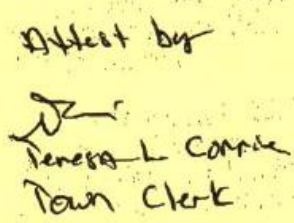 Attest by
Teresa L
Town Clerk